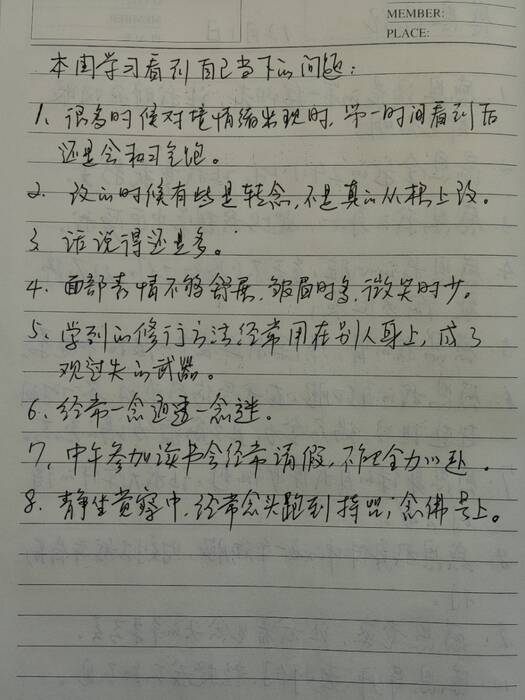 MEMBER:
PLACE:
本周学习看到自己当下的问题：
1、很多时候对境情绪出现时，第一时间看到后
还是会和习气跑。
2、改的时候有些是转念，不是真的从根上改。
3、话说得还是多。
4、面部表情不够舒展，皱眉时多，微笑时少。
5、学到的修行方法经常用在别人身上，成了
观过失的武器。
6、经常一念迷一念迷。
7、中午参加读书会经常请假，不能全力以赴。
8、静坐觉察中，经常念头跑到持咒，念佛号上。